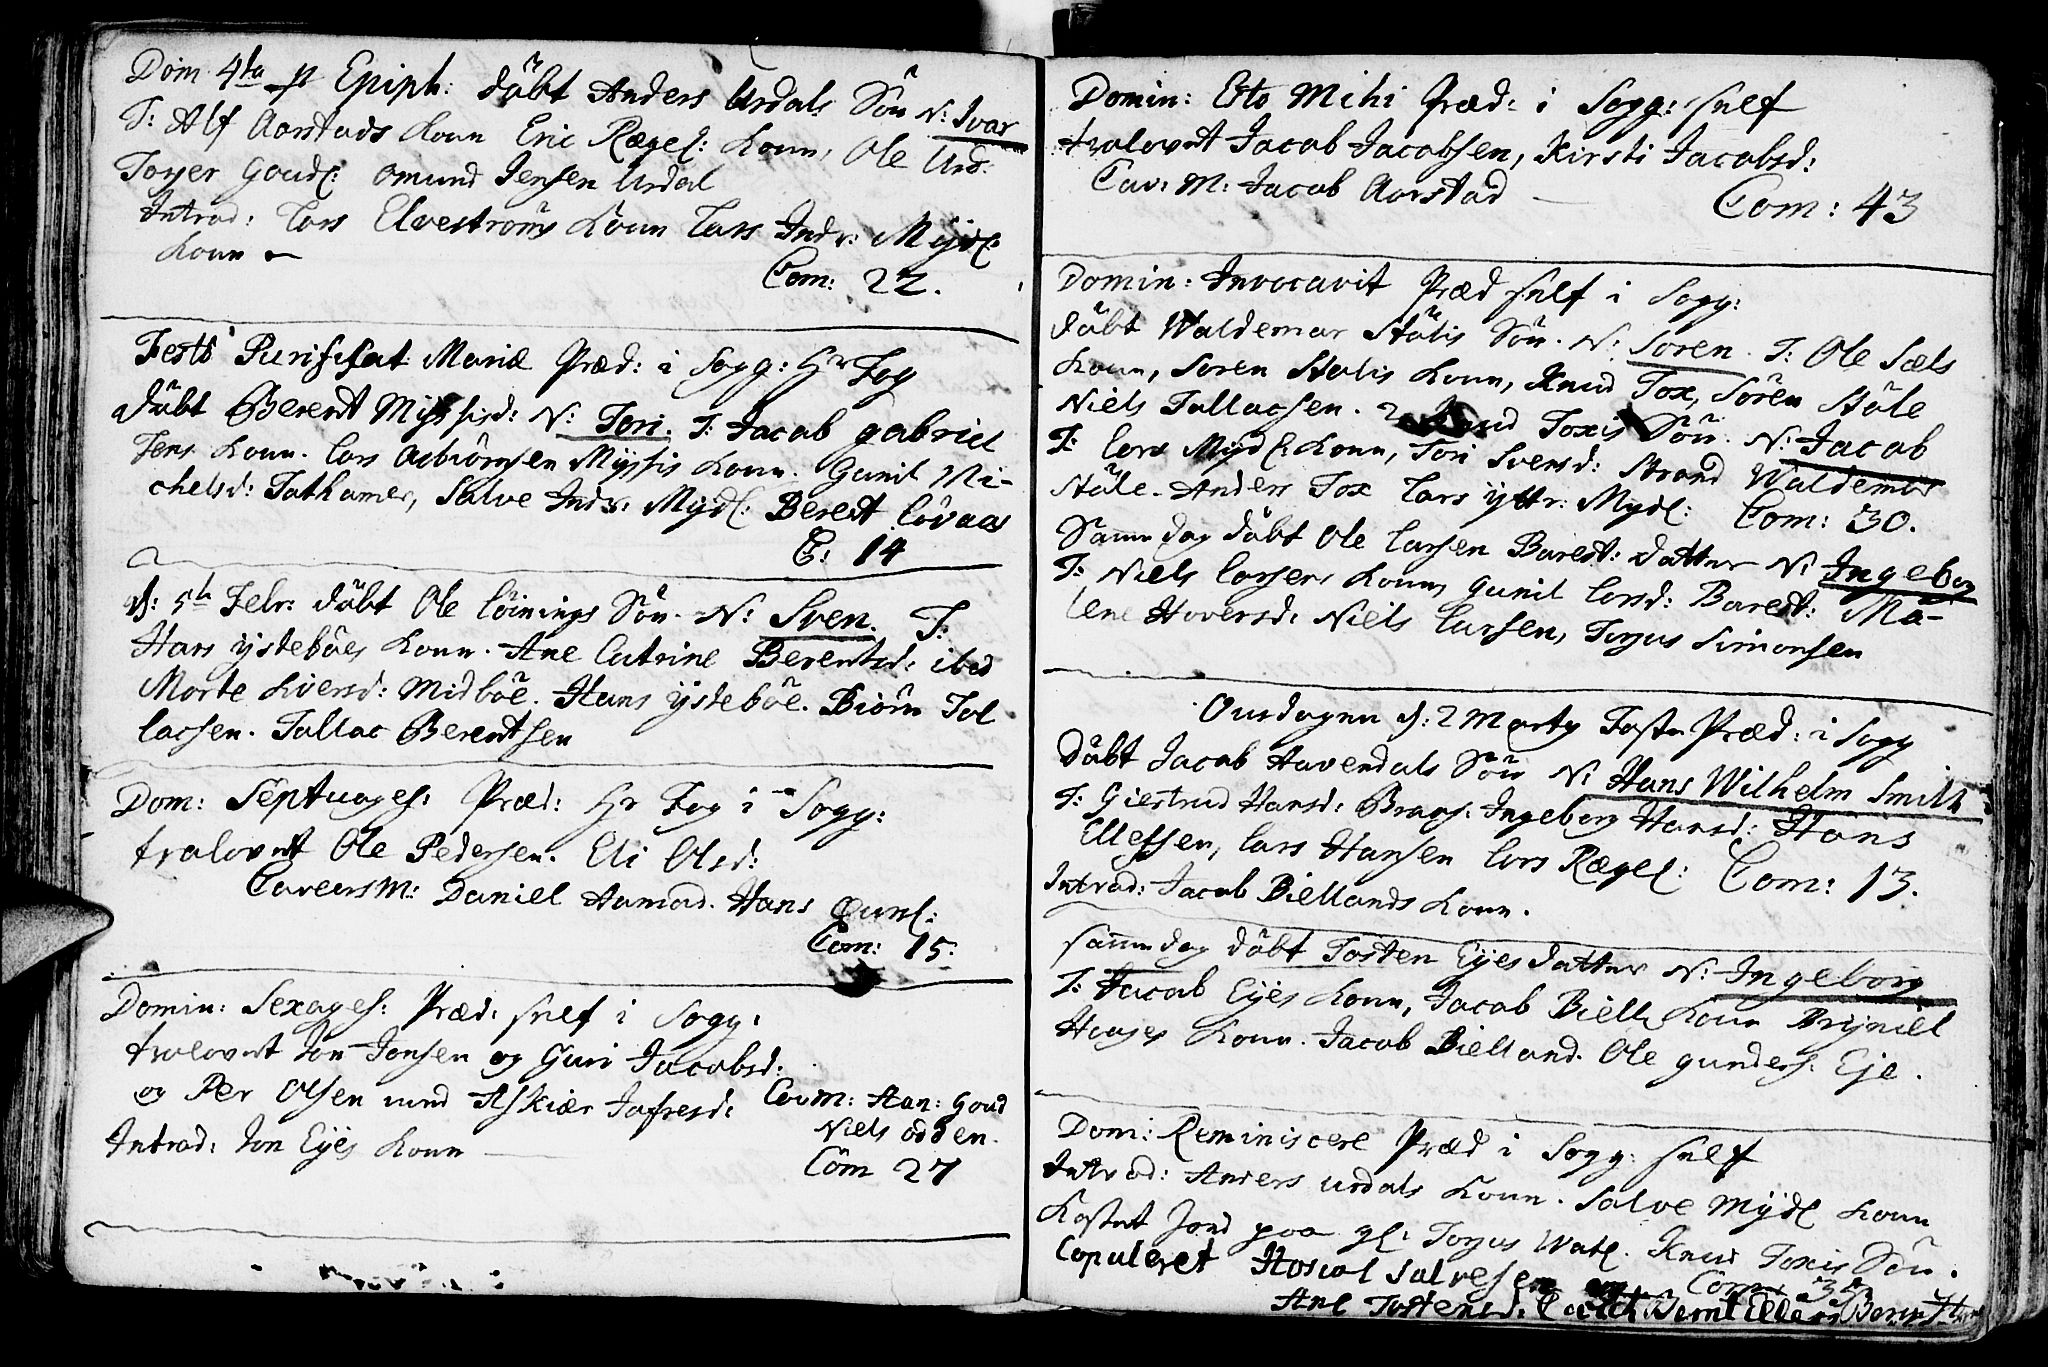 Dom 4ta p Epiph: döbt Anders Urdals Sön N: Ivar
T: Alf Aarstads Konn Eric Rægel: Konn, Ole Urd:
Torger Goudl: Omund Jensen Urdal
Introd: Lars Elvestrøms Konn Lars Indr: Mydl:
Konn
Com: 22.
Festo Purificat Mariæ Præd: i Sogg: Hr Fog
döbt Berent Myssisd: N: Tori. T: Jacob gabriel
sens Konn. Lars Asbiörnsen Myssis Konn. Gunil Mi-
chelsd: Tathamer, Salve Indr: Mydl: Berent Lövaas
C: 14
d: 5te Febr: döbt Ole Löinings Sön. N: Sven. T:
Hans ysteböes Konn. Ane Catrine Berentsd: ibid
Marte Siversd: Midböe. Hans ysteböe. Biörn Tol
lacsen. Tallac Berentsen
Dom: Septuages: Præd: Hr Fog i Sogg:
trolovet Ole Pedersen. Eli Olsd:
Caveers M: Daniel Aamod. Hans
Com: 15.
Domin: Sexages: Præd: self i Sogg:
trolovet Jon Jonsen og Guri Jacobsd:
og Per Olsen med Askier Jafresd: Cav M: Aan: Goud
Niels odden.
Introd: Jon Eyes Konn
Com 27
Domin: Esto Mihi Præd: i Sogg: self
trolovet Jacob Jacobsen, Kirsti Jacobsd:
Cav: M: Jacob Aarstad
Com: 43
Domin: Invocavit Præd self i Sogg:
döbt Waldemar Stölis Sön. N: Soren. T: Ole Sæls
Konn, Soren Stolis Konn, Knud Tox, Sören Stöle
Niels Tallacsen. 2 Knud Toxis Sön. N: Jacob
T: Lars Mydl: Konn, Tori Sversd: Strand Waldemar
Stöle. Anders Tox Lars yttr: Mydl: Com: 30.
Samme dag döbt Ole Larsen Barest: datter N: Ingeborg
T: Niels Larsens Konn, Gunil Larsd: Barest: Ma-
lene Hoversd: Niels Larsen, Torgus Simonsen
Onsdagen d: 2 Marty Faste Præd: i Sogg
döbt Jacob Aavendals Sön N: Hans Wilhelm Smith
T: Giertrud Hansd: Brans: Ingeborg Hansd: Hans
Ellefsen, Lars Hansen Lars Rægel: Com: 13.
Introd: Jacob Biellands Konn.
samme dag döbt Tosten Eyes datter N: Ingeborg
T: Jacob Eyes Konn, Jacob Biell: Konn Bryniel
Houges Konn. Jacob Bielland. Ole gunders: Eje.
Dom: Reminiscere Præd i Sogg: self
Introd: Anders Urdals Konn. Salve Mydl Konn
Kastet Jord paa gl: Torgus Watl. Knud Toxis Sön.
Copuleret Salvesen og Com: 32
Ane Tostensd: